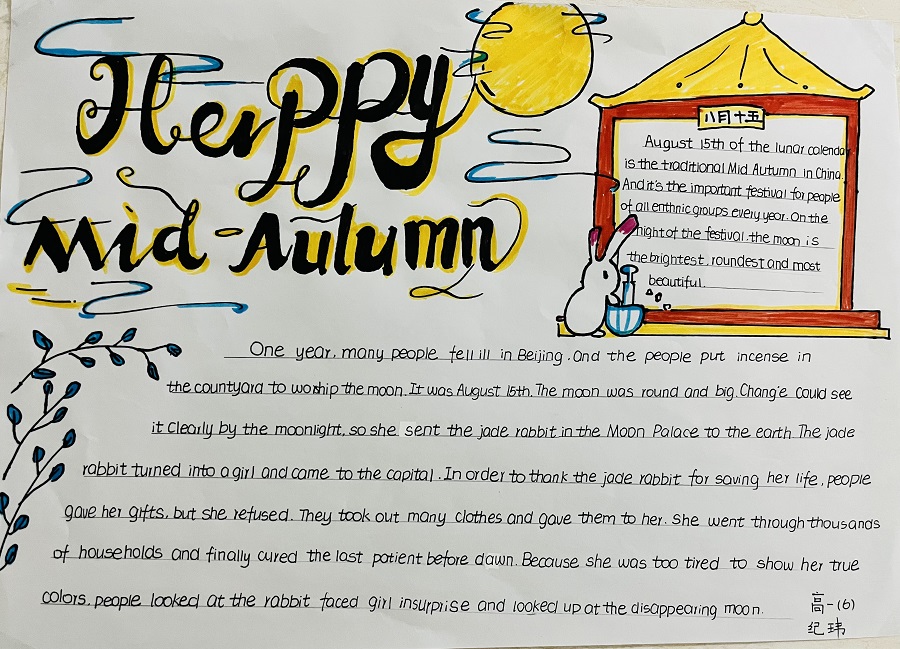 Herppy
Mid-Autumn
八月十五
August 15th of the lunar calendar
is the traditional Mid Autumn in China.
And it's the important festival for people
of all enthnic groups every year. On the
night of the festival. the moon is
the brightest. roundest and most
beautiful.
One year. many people fell ill in Beijing. And the people put incense in
the countyard to worship the moon. It was August 15th. The moon was round and big. Chang'e could see
it clearly by the moonlight, so she sent the jade rabbit in the Moon Palace to the earth. The jade
rabbit turned into a girl and came to the capital. In order to thank the jade rabbit for saving her life, people
gave her gifts, but she refused. They took out many clothes and gave them to her. She went through thousands
of households and finally cured the last patient before dawn. Because she was too tired to show her true
colors, people looked at the rabbit faced girl insurprise and looked up at the disappearing moon.
高一(6)
纪玮